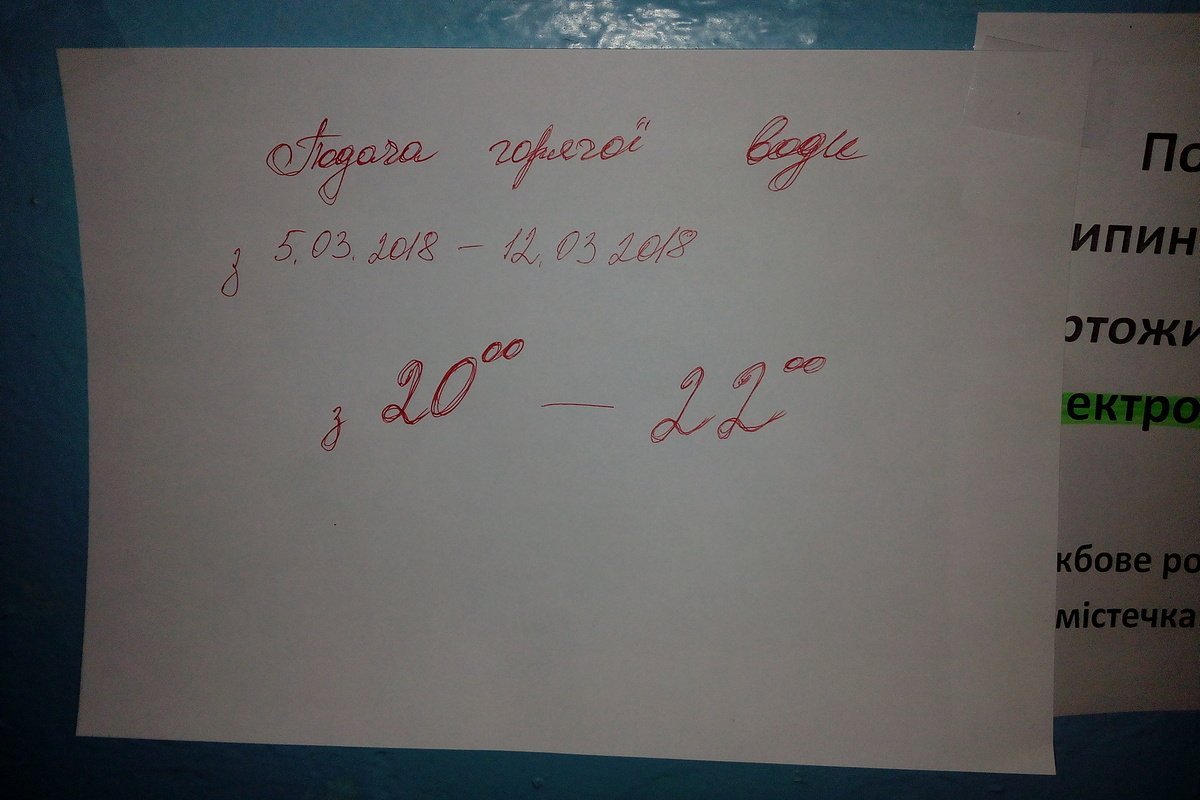 Подача горячої води
з 5.03.2018 – 12.03 2018
з 20⁰⁰ — 22⁰⁰
По
ипин
ртожи
ектро
жбове ро
містечка